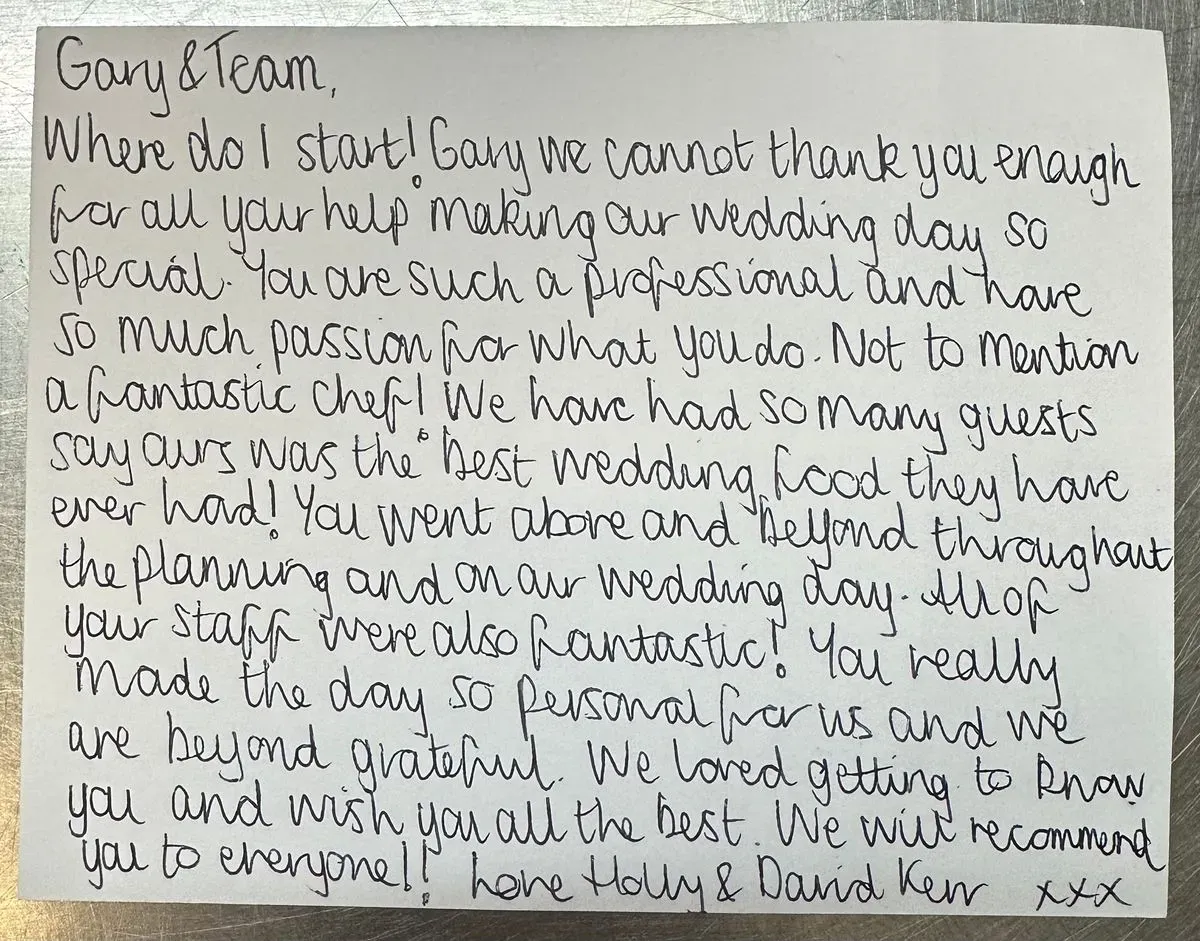 Gary & Team,
Where do I start! Gary we cannot thank you enough
for all your help making our wedding day so
special. You are such a professional and have
so much passion for what you do. Not to mention
a fantastic chef! We have had so many guests
say ours was the best wedding food they have
ever had! You went above and beyond throughout
the planning and on our wedding day. All of
your staff were also fantastic! You really
made the day so personal for us and we
are beyond grateful. We loved getting to know
you and wish you all the best. We will recommend
you to everyone!! Love Holly & David Kerr xxx